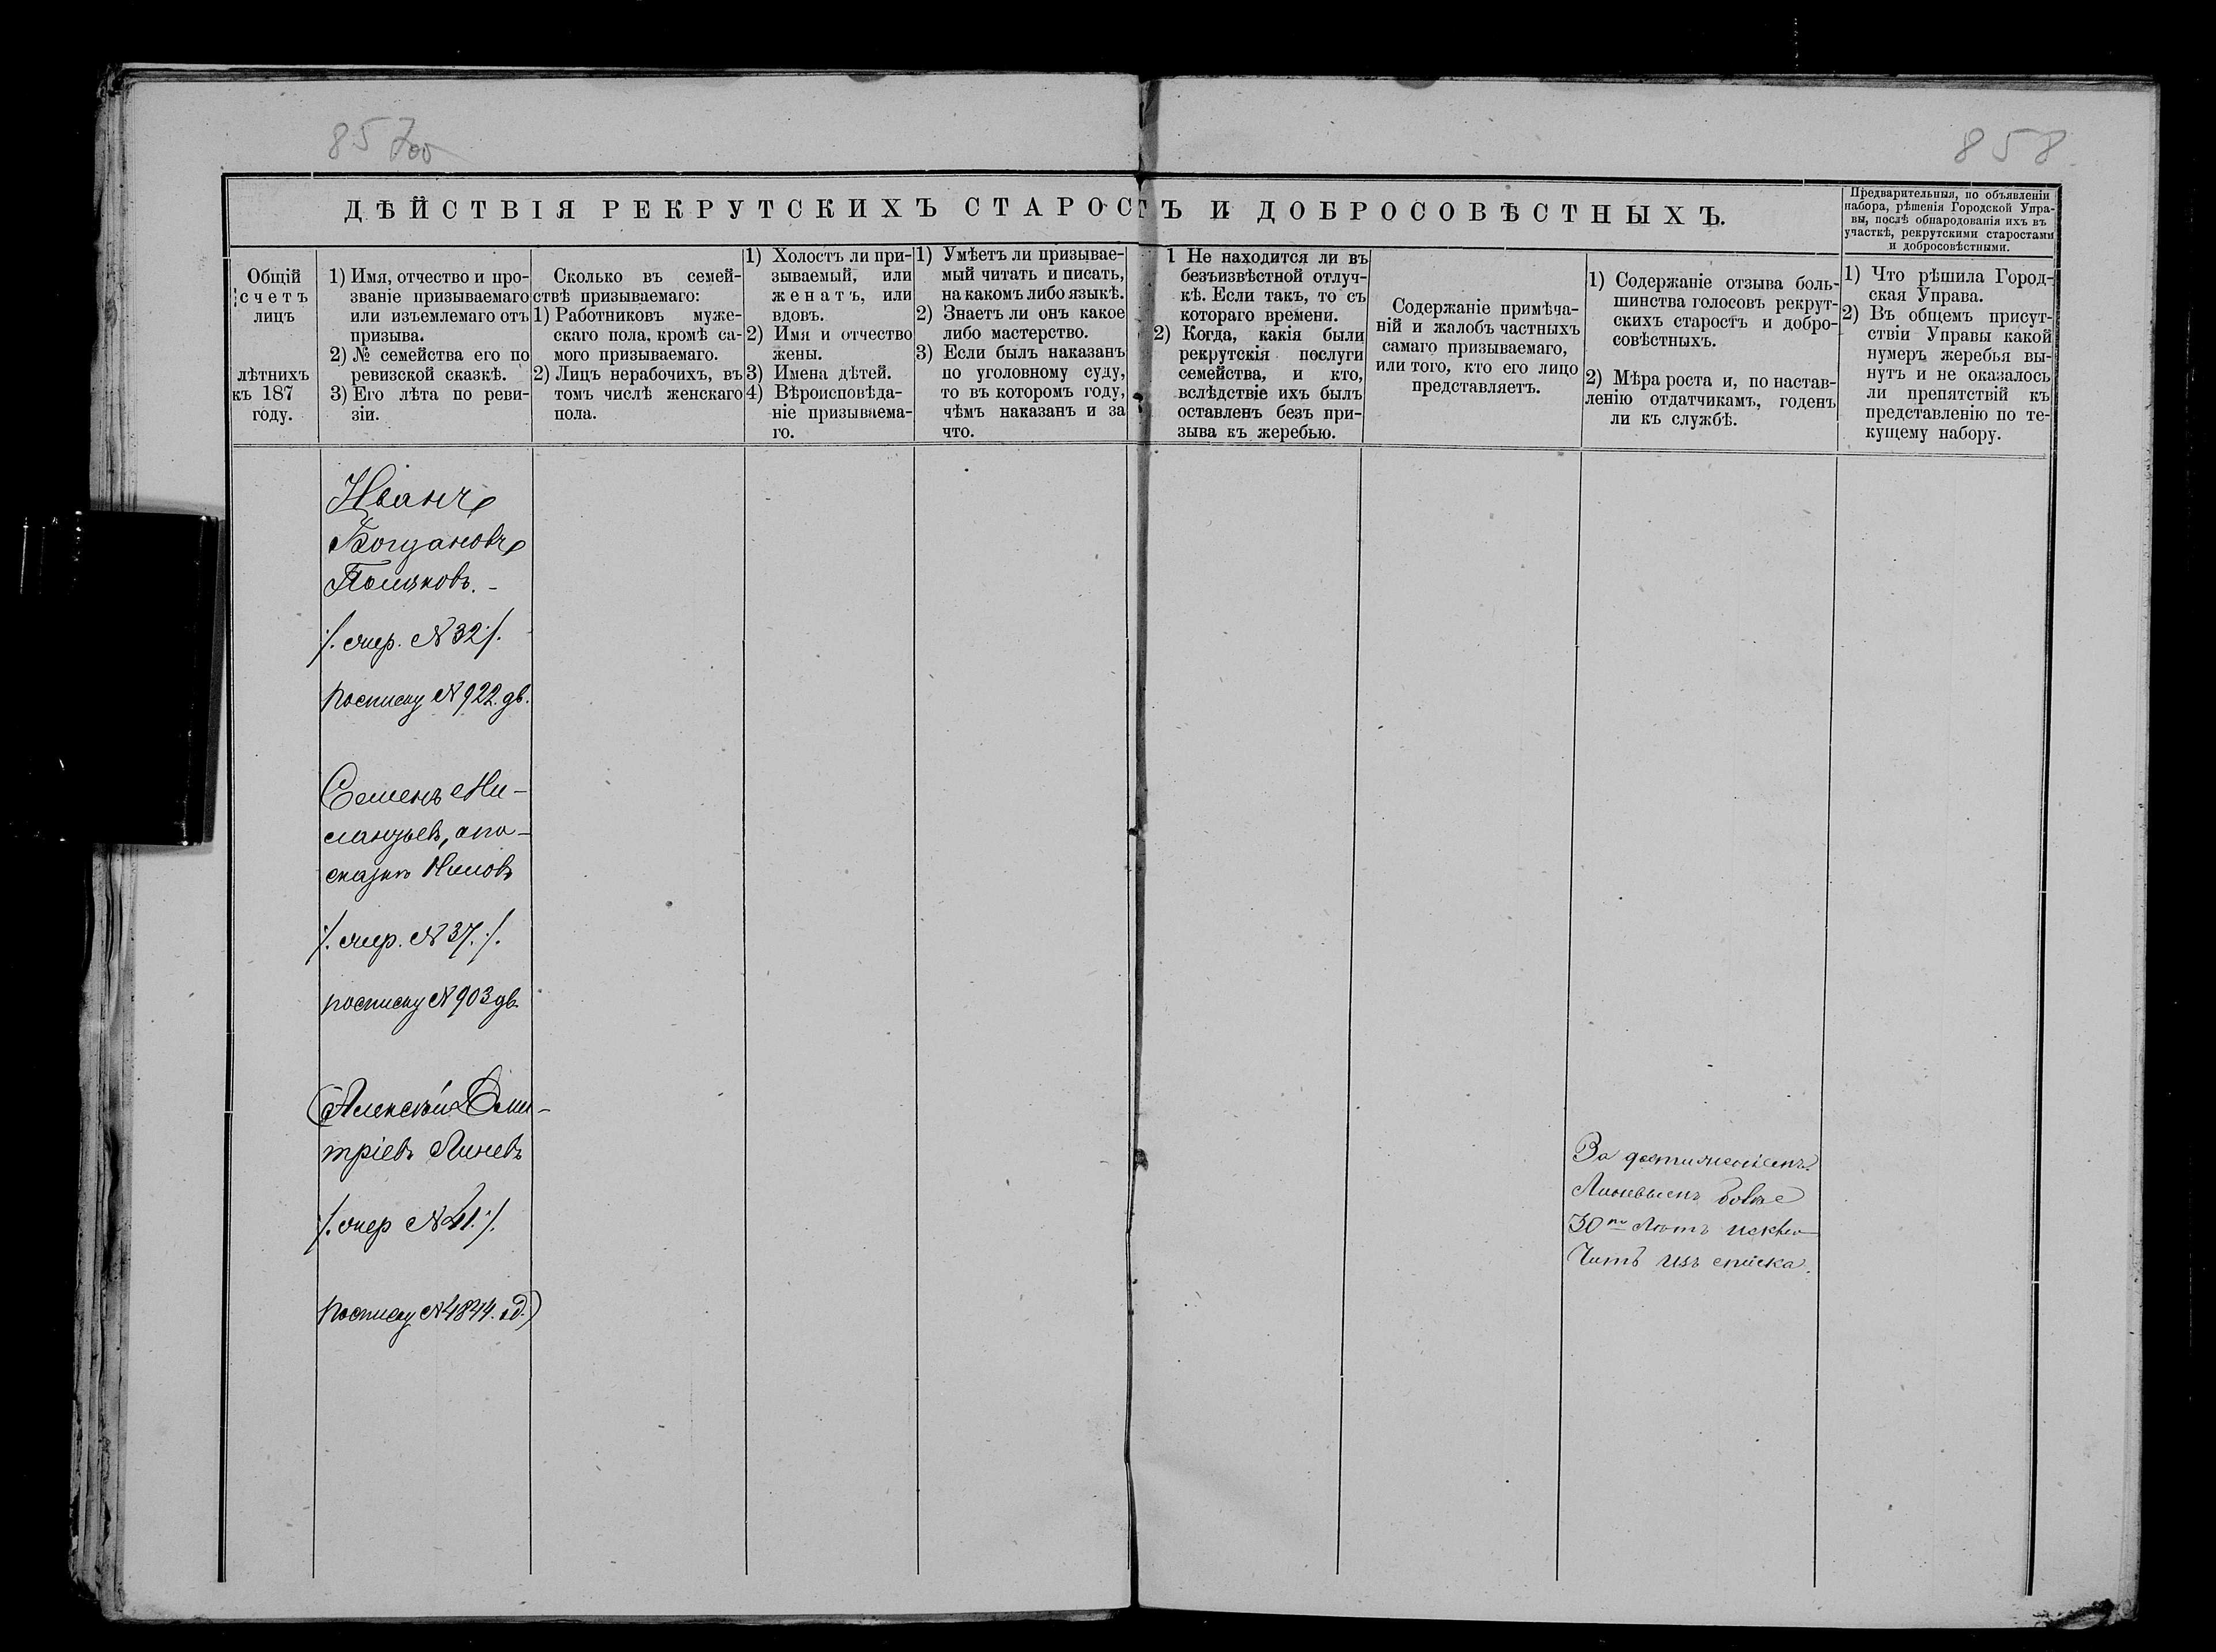 857об
858
ДѢЙСТВІЯ РЕКРУТСКИХЪ СТАРОСТЪ И ДОБРОСОВѢСТНЫХЪ.
Предварительныя, по объявленіи
набора, рѣшенія Городской Упра-
вы, послѣ обнародованія ихъ въ
участкѣ, рекрутскими старостами
и добросовѣстными.
Общій
счетъ
лицъ
лѣтнихъ
къ 187
году.
1) Имя, отчество и про-
званіе призываемаго
или изъемлемаго отъ
призыва.
2) № семейства его по
ревизской сказкѣ.
3) Его лѣта по реви-
зіи.
Сколько въ семей-
ствѣ призываемаго:
1) Работниковъ муже-
скаго пола, кромѣ са-
мого призываемаго.
2) Лицъ нерабочихъ, въ
томъ числѣ женскаго
пола.
1) Холостъ ли при-
зываемый, или
женатъ, или
вдовъ.
2) Имя и отчество
жены.
3) Имена дѣтей.
4) Вѣроисповѣда-
ніе призываема-
го.
1) Умѣетъ ли призывае-
мый читать и писать,
на какомъ либо языкѣ.
2) Знаетъ ли онъ какое
либо мастерство.
3) Если былъ наказанъ
по уголовному суду,
то въ которомъ году,
чѣмъ наказанъ и за
что.
1 Не находится ли въ
безъизвѣстной отлуч-
кѣ. Если такъ, то съ
котораго времени.
2) Когда, какія были
рекрутскія послуги
семейства, и кто,
вслѣдствіе ихъ былъ
оставленъ безъ при-
зыва къ жеребью.
Содержаніе примѣча-
ній и жалобъ частныхъ
самаго призываемаго,
или того, кто его лицо
представляетъ.
1) Содержаніе отзыва боль-
шинства голосовъ рекрут-
скихъ старостъ и добро-
совѣстныхъ.
2) Мѣра роста и, по настав-
ленію отдатчикамъ, годенъ
ли къ службѣ.
1) Что рѣшила Город-
ская Управа.
2) Въ общемъ присут-
ствіи Управы какой
нумеръ жеребья вы-
нутъ и не оказалось
ли препятствій къ
представленію по те-
кущему набору.
Иванъ
Богдановъ
Поляковъ. -
/. очер. №32 /.
По списку №922. дв.
Семенъ
а по
сказкѣ Ниловъ
/. очер. №37. /.
по списку №903 дв.
(Алексѣй Дми-
тріевъ Линевъ
/. очер №41. /.
По списку №4844. од.)
За достиженіемъ
Линевымъ болѣе
30ти лѣтъ исклю-
чить изъ списка.